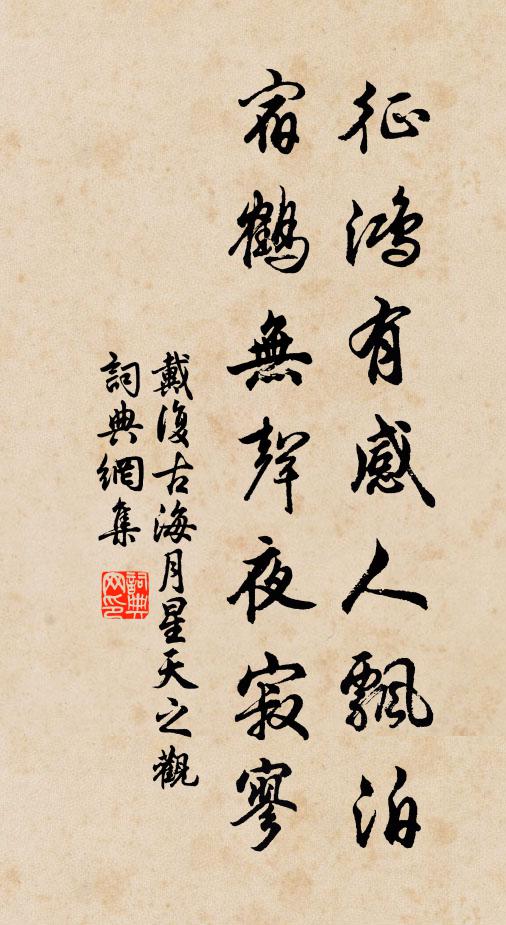 征鴻有感人飄泊
宿鶴無聲夜寂寥
戴復古海月星天之觀
詞典網集
詞典网印